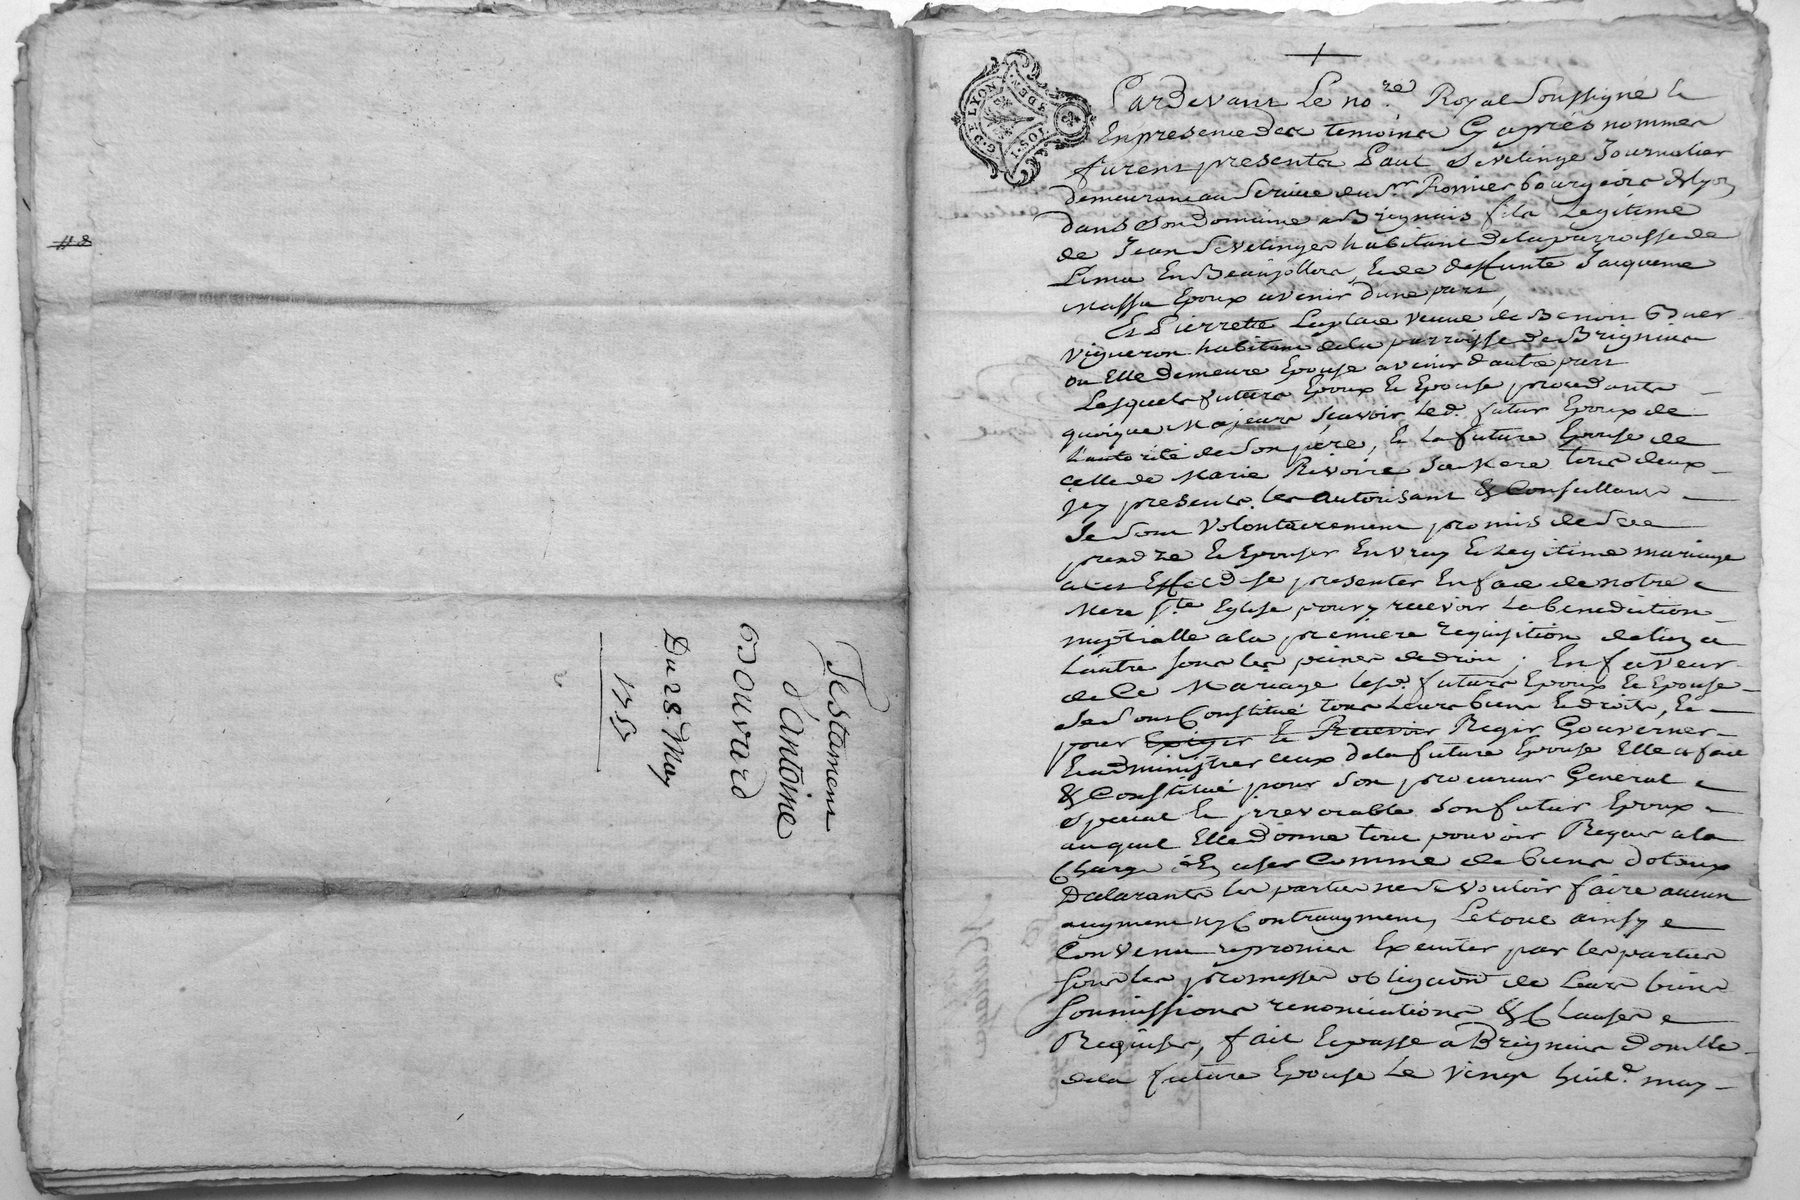 118
Testament
d'antoine
Bouvard
Du 28. May
1757
G. DE LYON
I. SOL
4. DEN.
Pardevant Le no.re Royal Soussigné &
En presence des temoins Cy aprés nommes
furent presents Paul Sevelinge Journalier
demeurant au Service du Sr Romier bourgeois de Lyon
dans Son domaine a Brignais fils Legitime
de Jean Sevelinge habitant de la parroisse de
en Beaujollois, & de deffunte Jacqueme
Massu Epoux avenir d'une part,
Et Pierrette Laplace veuve de Benoit
vigneron habitant de la parroisse de Brignais
ou Elle demeure Epouse avenir d'autre part
Lesquels futurs Epoux & Epouse procedants
quoique Majeurs Scavoir Led. futur Epoux de
L'autorité de Son pere, & La future Epouse de
celle de Marie Rivoire Sa Mere tous deux
jcy presents les autorisant & Conseillants
Se Sont Volontairement promis de Se
prendre & Epouser En vray & Legitime mariage
a cet Effet de se presenter En face de notre
Mere Ste Eglise pour y recevoir La benediction
nuptialle a la premiere requisition de l'un a
L'autre sous les peines de droit; En faveur
de Ce Mariage lesd. futurs Epoux & Epouse
Se Sont Constitué tous Leurs biens & droits, &
pour Exiger & Recevoir Regir Gouverner
& administrer ceux de la future Epouse Elle a fait
& Constitué pour Son procureur General
Special & jrrevocable Son futur Epoux
auquel Elle donne tout pouvoir Requis a la
Charge d'En user Comme de biens dotaux
Declarants les parties ne Vouloir faire aucun
augment ny Contraugment, Letout ainsy
Convenu & promis Executer par les parties
Sous les promesses obligaõn de Leurs biens
Soumissions renonciations & Clauses
Requises, fait & passé a Brignais domile
de la future Epouse Le Vingt huit.e may